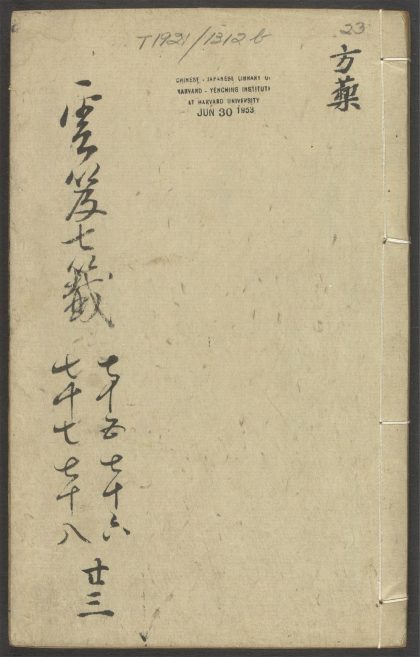 T1921/1312b
23
CHINESE - JAPANESE LIBRARY OF
HARVARD - YENCHING INSTITUTE
AT HARVARD UNIVERSITY
JUN 30 1953
方藥
雲笈七籤
七十五 七十六
七十七 七十八
廿三